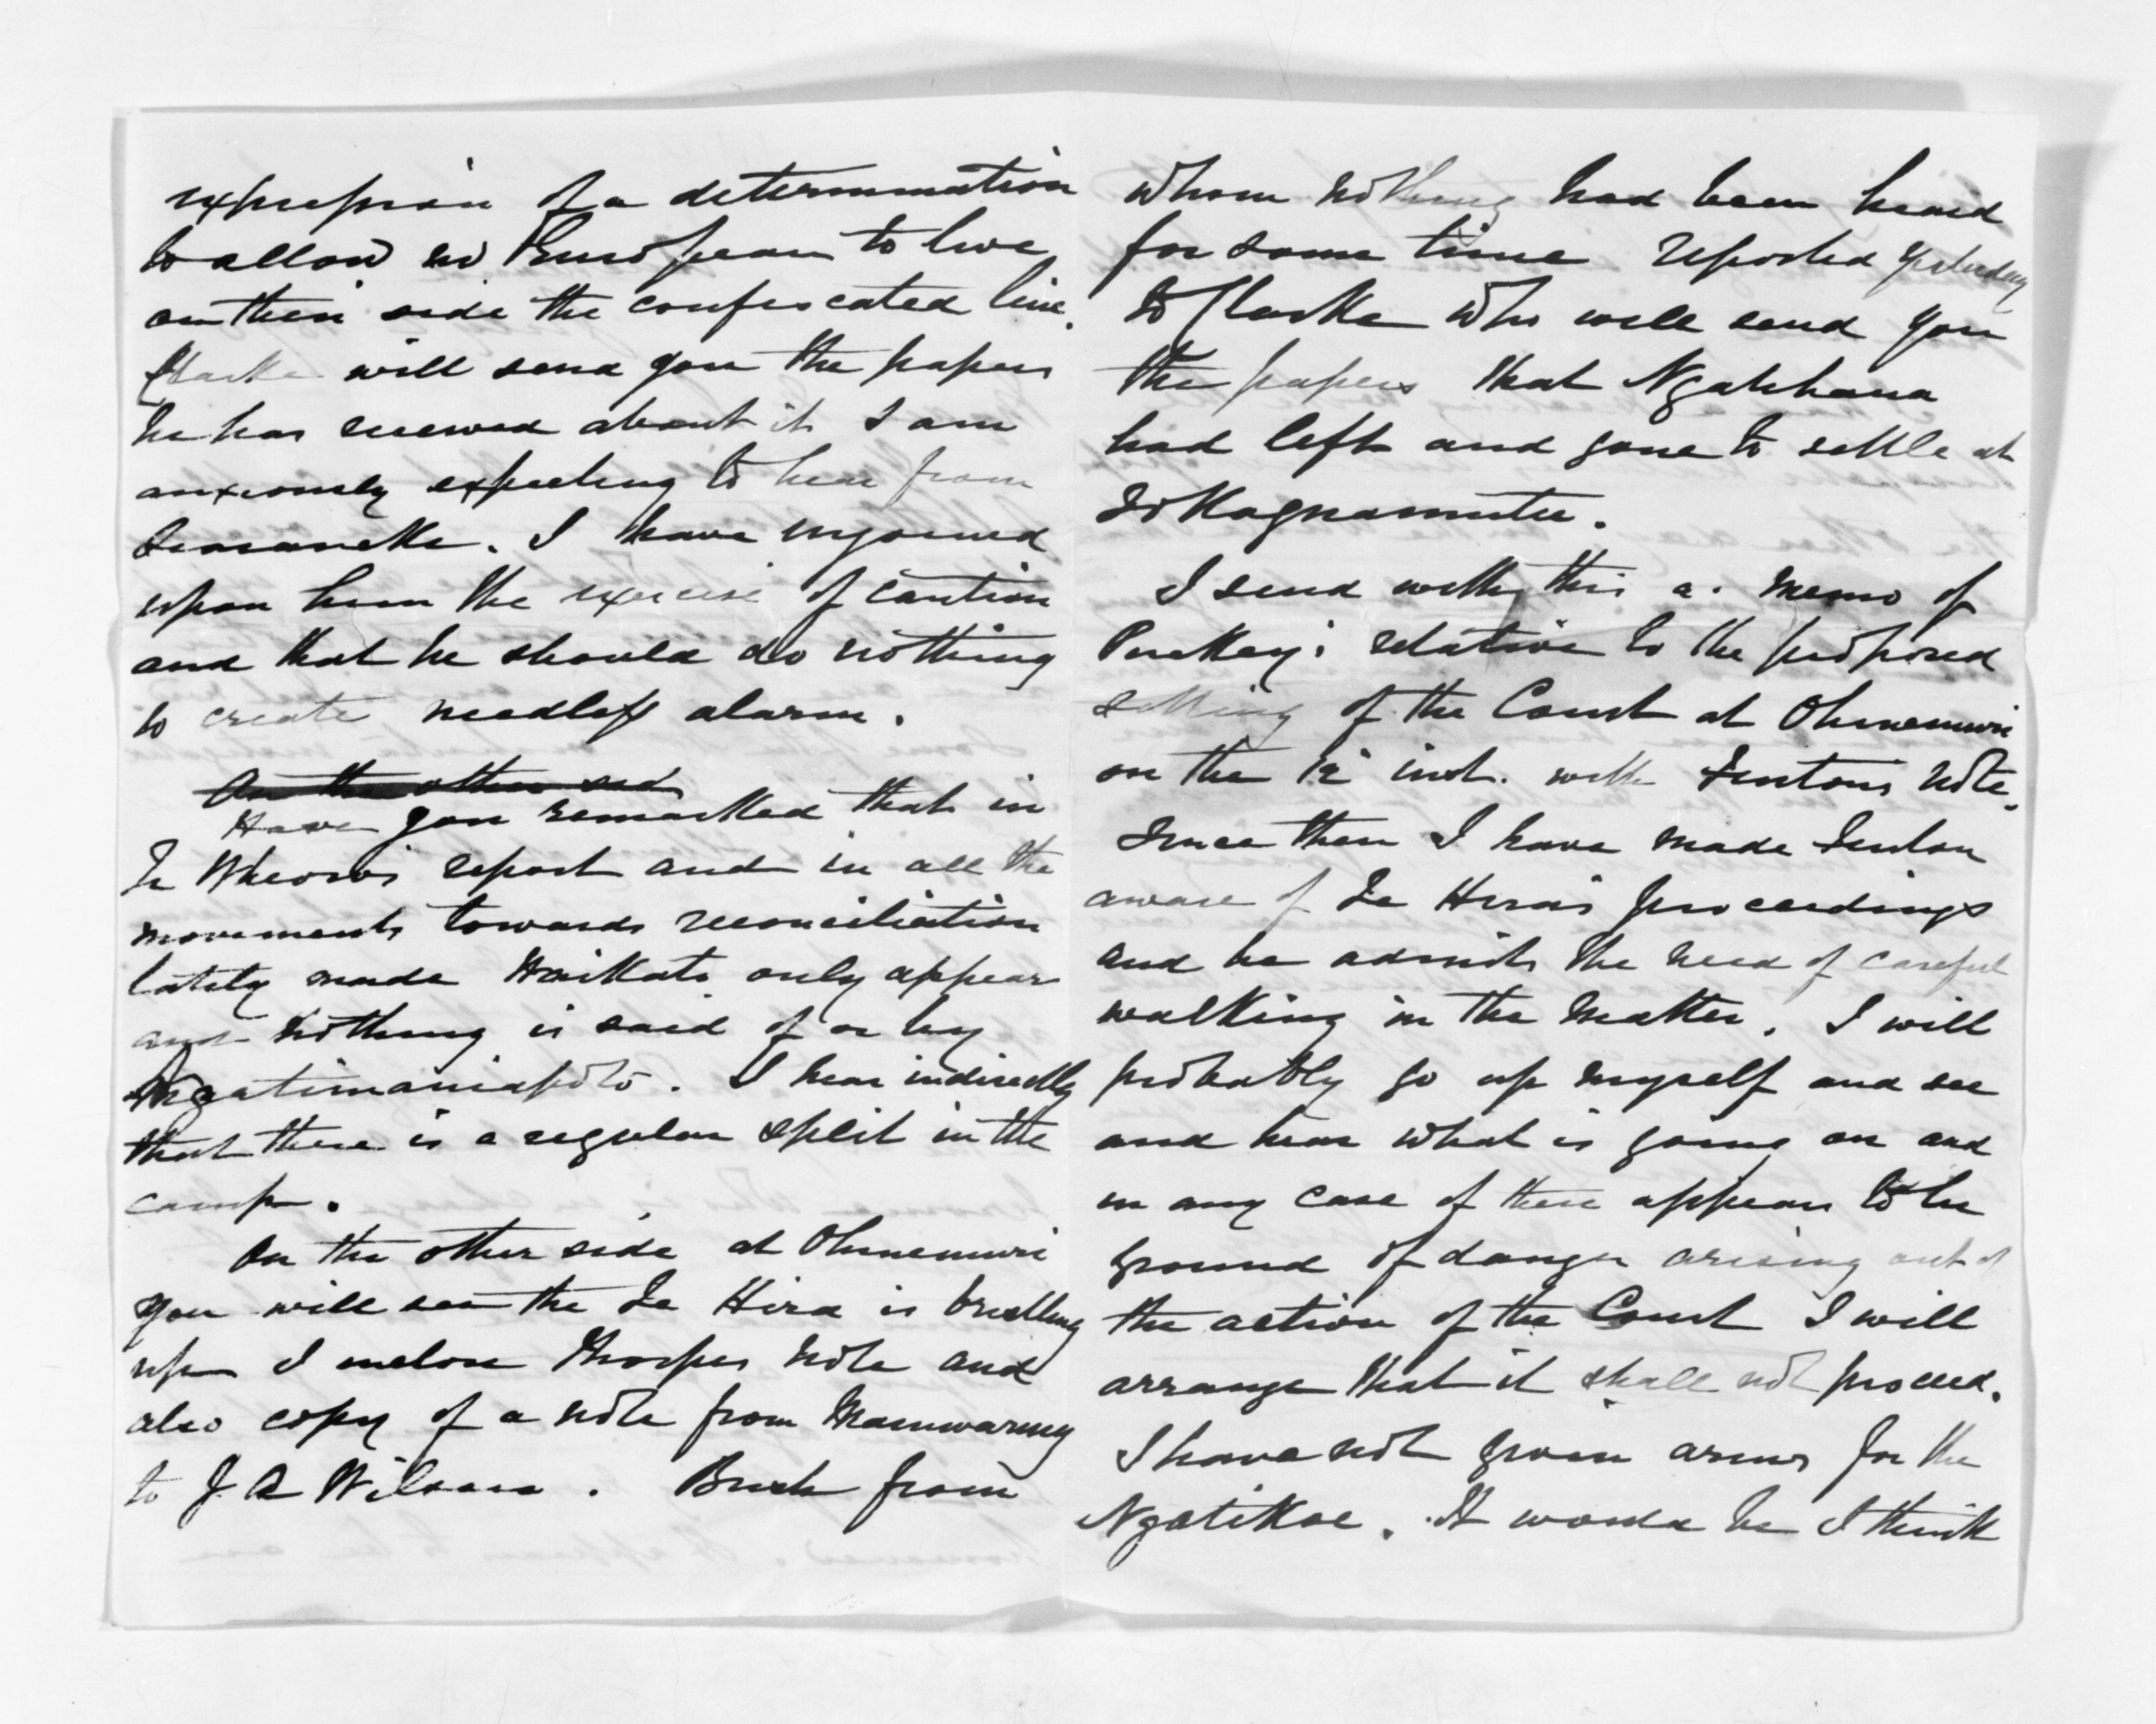 expression of a determination
to allow no European to live
on their side the confiscated line.
Clarke will send you the papers
he has received about it I am
anxiously expecting to hear from
Searancke. I have enjoined
upon him the exercise of caution
and that he should do nothing
to create needless alarm.
On the other sid
Have you remarked that in
Te Wheoro's report and in all the
movements towards reconciliation
lately made Waikato only appear
and nothing is said of or by
Ngatimaniapoto. I hear indirectly
that there is a regular split in the
camp.
On the other side at Ohinemuri
you will see the Te Hira is bristling
up I enclose Thorpes note and
also copy of a note from Mainwaring
to J A Wilson. Bush from
whom nothing had been heard
for some time reported yesterday
to Clarke who will send you
the papers that Ngakhaua
had left and gone to settle at
Tokagnamutu.
I send with this a. memo of
Puckey's relative to the proposed
sitting of the Court at Ohinemuri
on the 12 inst. with Fentons note.
Since then I have made Fenton
aware of Te Hira's proceedings
and he admits the need of careful
walking in the matter. I will
probably go up myself and see
and hear what is going on and
in any case if there appears to be
ground of danger arising out of
the action of the Court I will
arrange that it shall not proceed.
I have not given arms for the
Ngatikoe. It would be I think